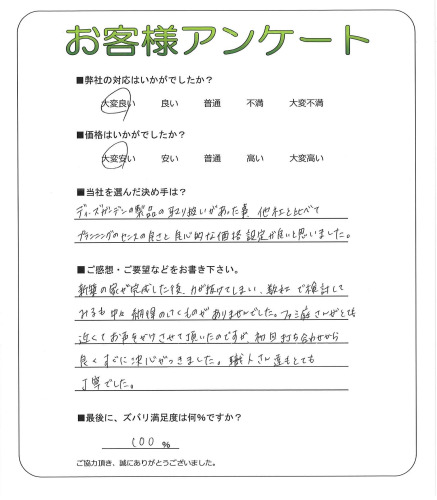 お客様アンケート
■弊社の対応はいかがでしたか？
大変良い 良い 普通 不満 大変不満
■価格はいかがでしたか？
大変安い 安い 普通 高い 大変高い
■当社を選んだ決め手は？
ディーズガーデンの製品の取り扱いがあった事、他社と比べて
プランニングのセンスの良さと良心的な価格設定が良いと思いました。
■ご感想・ご要望などをお書き下さい。
新築の家が完成した後、力が抜けてしまい、数社で検討して
みるも中々納得のいくものがありませんでした。ファミ庭さんがとても
近くてお声をかけさせて頂いたのですが、初回打ち合わせから
良くすぐに決心がつきました。職人さん達もとても
丁寧でした。
■最後に、ズバリ満足度は何％ですか？
100 %
ご協力頂き、誠にありがとうございました。